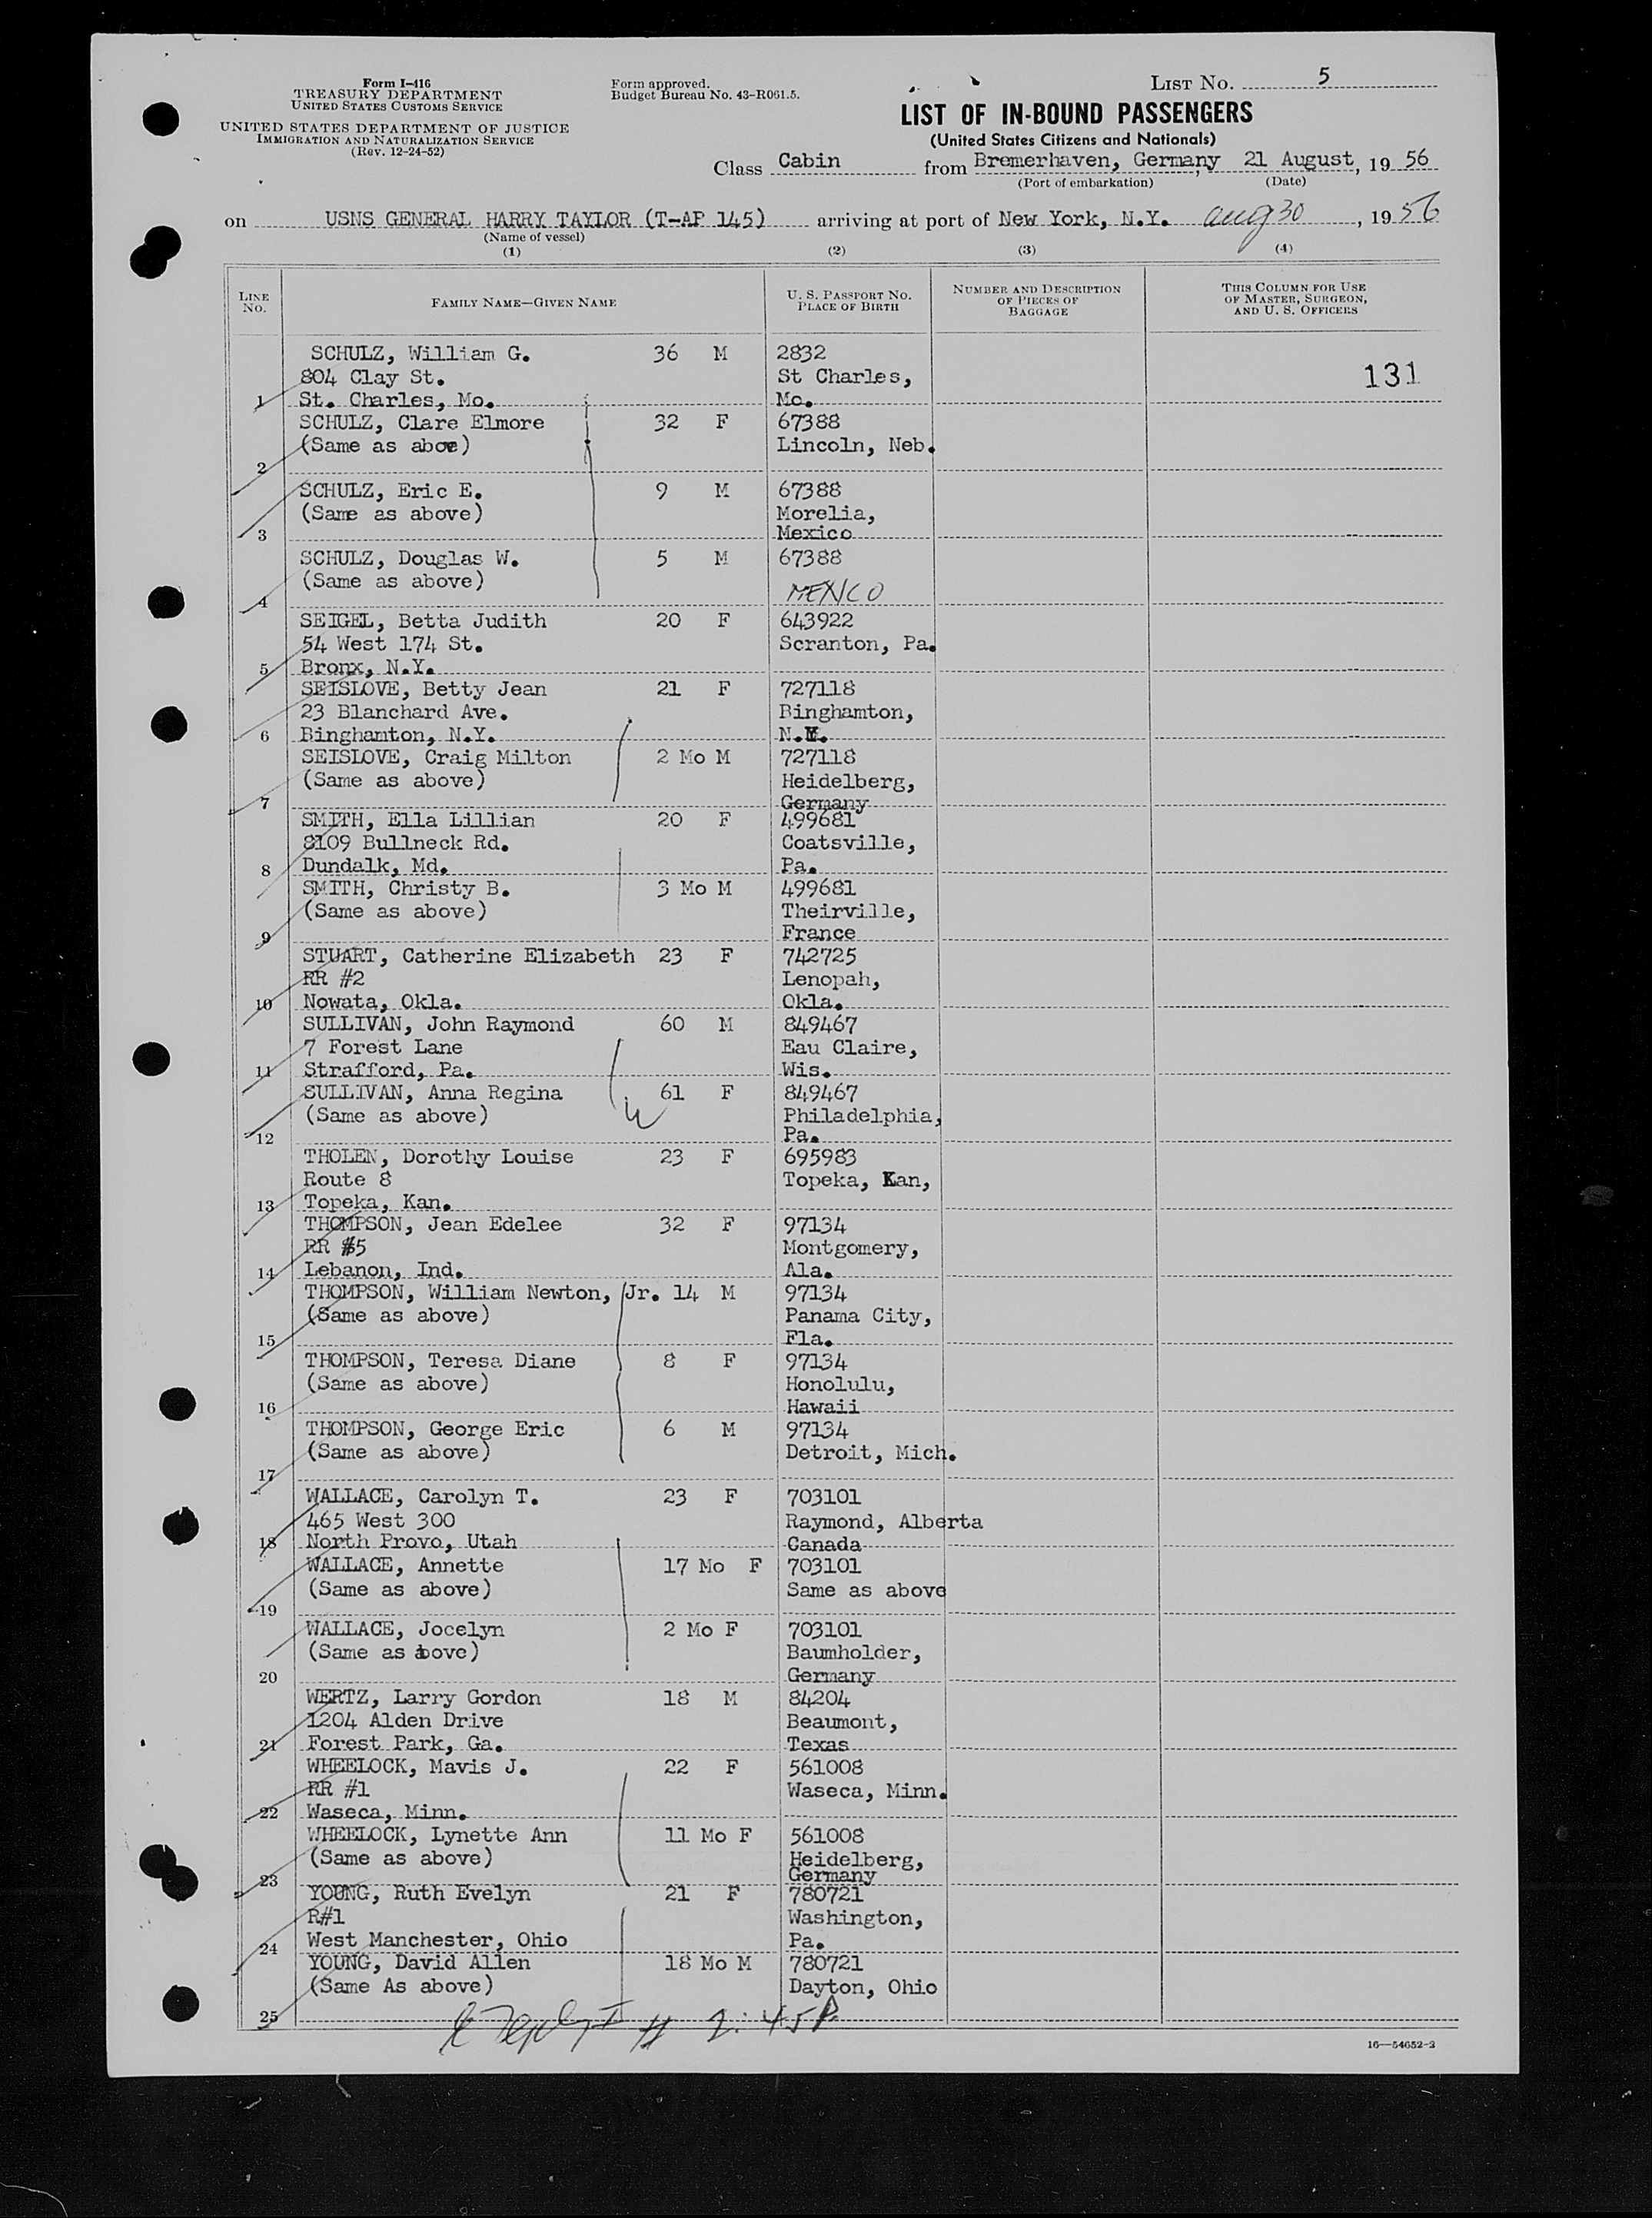 Form I-416
TREASURY DEPARTMENT
UNITED STATES CUSTOMS SERVICE
UNITED STATES DEPARTMENT OF JUSTICE
IMMIGRATION AND NATURALIZATION SERVICE
(Rev. 12-24-52)
Form approved.
Budget Bureau No. 43-R061.5.
LIST NO. 5
LIST OF IN-BOUND PASSENGERS
(United States Citizens and Nationals)
Class Cabin from Bremerhaven, Germany, 21 August, 19 56
(Port of embarkation) (Date)
on USNS GENERAL HARRY TAYLOR (T-AP 145) arriving at port of New York, N.Y. Aug 30, 19 56
(Name of vessel)
(1) (2) (3) (4)
LINE NO. FAMILY NAME—GIVEN NAME U. S. PASSPORT NO. PLACE OF BIRTH NUMBER AND DESCRIPTION OF PIECES OF BAGGAGE THIS COLUMN FOR USE OF MASTER, SURGEON, AND U. S. OFFICERS
SCHULZ, William G. 36 M 2832
804 Clay St. St Charles, 131
1 St. Charles, Mo. Mo.
SCHULZ, Clare Elmore 32 F 67388
(Same as above) Lincoln, Neb.
2
SCHULZ, Eric E. 9 M 67388
(Same as above) Morelia,
3 Mexico
SCHULZ, Douglas W. 5 M 67388
(Same as above) MEXICO
4
SEIGEL, Betta Judith 20 F 643922
54 West 174 St. Scranton, Pa.
5 Bronx, N.Y.
SEISLOVE, Betty Jean 21 F 727118
23 Blanchard Ave. Binghamton,
6 Binghamton, N.Y. N.Y.
SEISLOVE, Craig Milton 2 Mo M 727118
(Same as above) Heidelberg,
7 Germany
SMITH, Ella Lillian 20 F 499681
8109 Bullneck Rd. Coatsville,
8 Dundalk, Md. Pa.
SMITH, Christy B. 3 Mo M 499681
(Same as above) Theirville,
9 France
STUART, Catherine Elizabeth 23 F 742725
RR #2 Lenopah,
10 Nowata, Okla. Okla.
SULLIVAN, John Raymond 60 M 849467
7 Forest Lane Eau Claire,
11 Strafford, Pa. Wis.
SULLIVAN, Anna Regina 61 F 849467
(Same as above) Philadelphia,
12 Pa.
THOLEN, Dorothy Louise 23 F 695983
Route 8 Topeka, Kan,
13 Topeka, Kan.
THOMPSON, Jean Edelee 32 F 97134
RR #5 Montgomery,
14 Lebanon, Ind. Ala.
THOMPSON, William Newton, Jr. 14 M 97134
(Same as above) Panama City,
15 Fla.
THOMPSON, Teresa Diane 8 F 97134
(Same as above) Honolulu,
16 Hawaii
THOMPSON, George Eric 6 M 97134
(Same as above) Detroit, Mich.
17
WALLACE, Carolyn T. 23 F 703101
465 West 300 Raymond, Alberta
18 North Provo, Utah Canada
WALLACE, Annette 17 Mo F 703101
(Same as above) Same as above
19
WALLACE, Jocelyn 2 Mo F 703101
(Same as above) Baumholder,
20 Germany
WERTZ, Larry Gordon 18 M 84204
1204 Alden Drive Beaumont,
21 Forest Park, Ga. Texas
WHEELOCK, Mavis J. 22 F 561008
RR #1 Waseca, Minn.
22 Waseca, Minn.
WHEELOCK, Lynette Ann 11 Mo F 561008
(Same as above) Heidelberg,
23 Germany
YOUNG, Ruth Evelyn 21 F 780721
R#1 Washington,
24 West Manchester, Ohio Pa.
YOUNG, David Allen 18 Mo M 780721
(Same As above) Dayton, Ohio
25
2:45P
16—54652-2